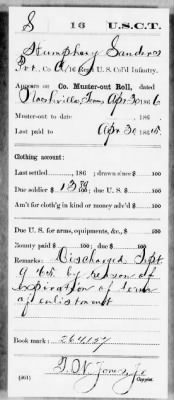 S 16 U.S.C.T.
Humphrey Sanders
Pvt, Co. A, 16 Reg't U.S. Col'd Infantry.
Appears on Co. Muster-out Roll, dated
Nashville, Tenn Apr 30, 1866
Muster-out to date , 186 .
Last paid to Apr 30, 1865.
Clothing account:
Last settled , 186 ; drawn since $ 100
Due soldier $ 100; due U.S. $ 100
Am't for cloth'g in kind or money adv'd $ 100
Due U.S. for arms, equipments, &c., $ 100
Bounty paid $ 100; due $ 100
Remarks: Discharged Sept
9 '65 by reason of
expiration of term
of enlistment
Book mark: 264157
(861) Copyist.